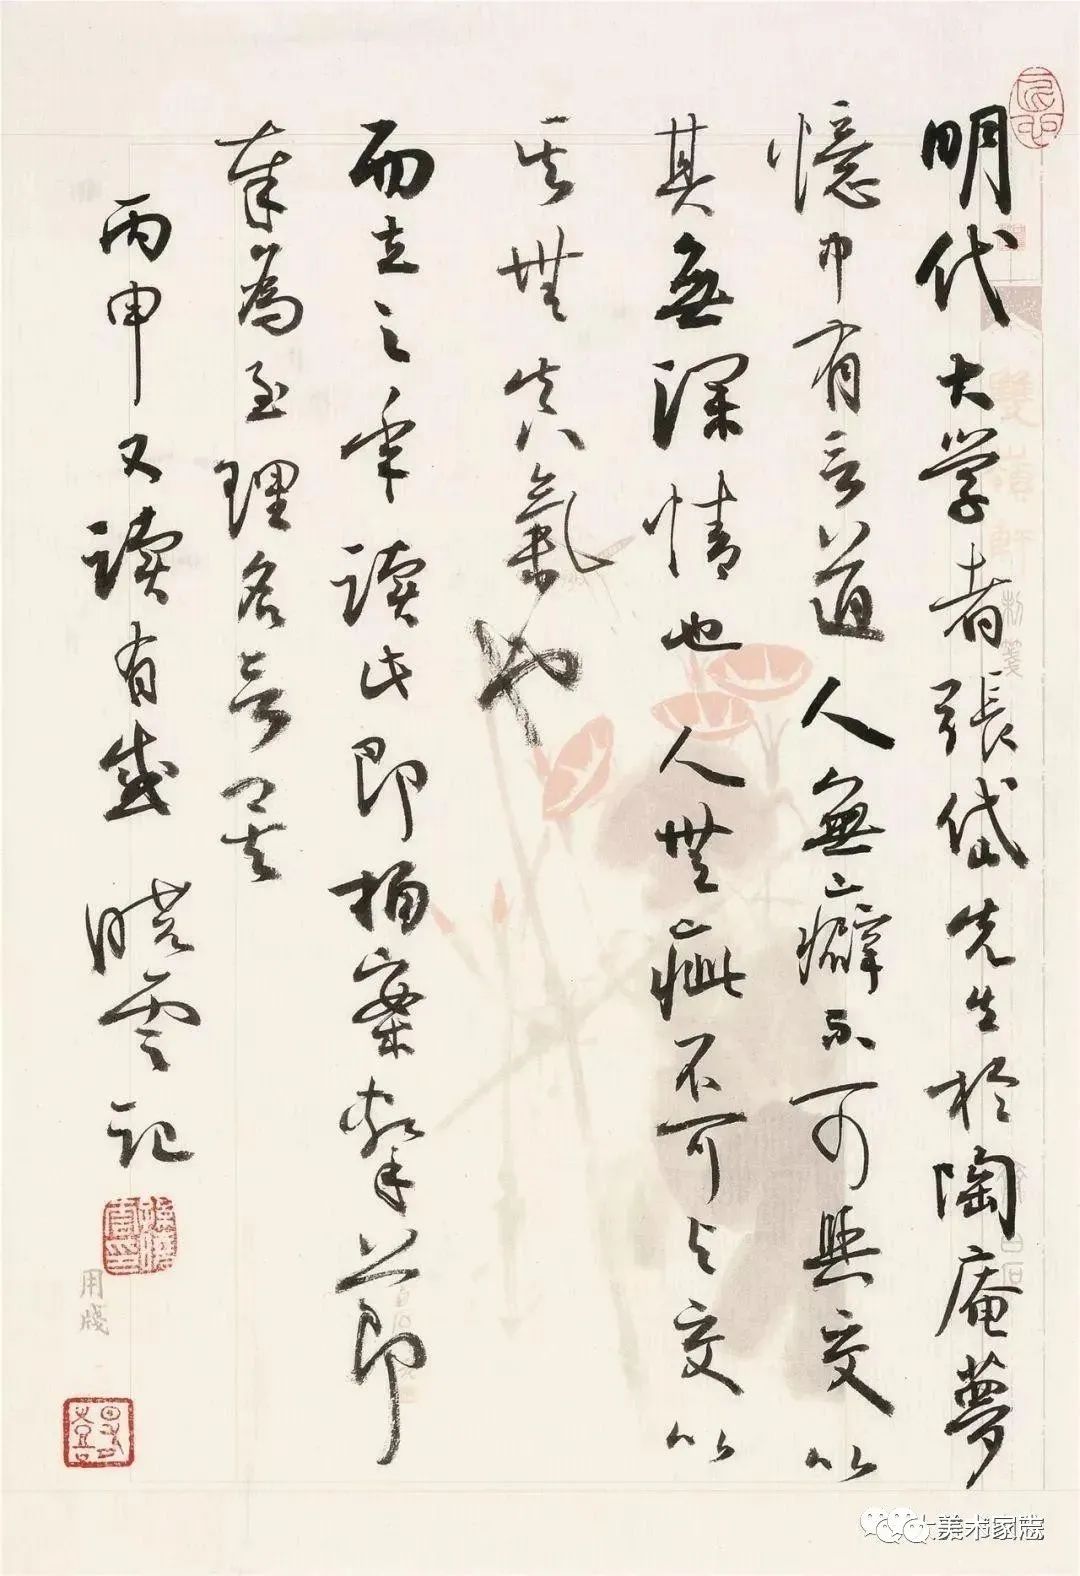 明代大学者張岱先生於陶庵夢
憶中有言道人無癖不可與交以
其無深情也人無疵不可与交以
其無真氣也
而立之年讀此即拍案擊节即
奉為至理名言是
丙申又讀有感 曉雲記
用箋
大美术家志